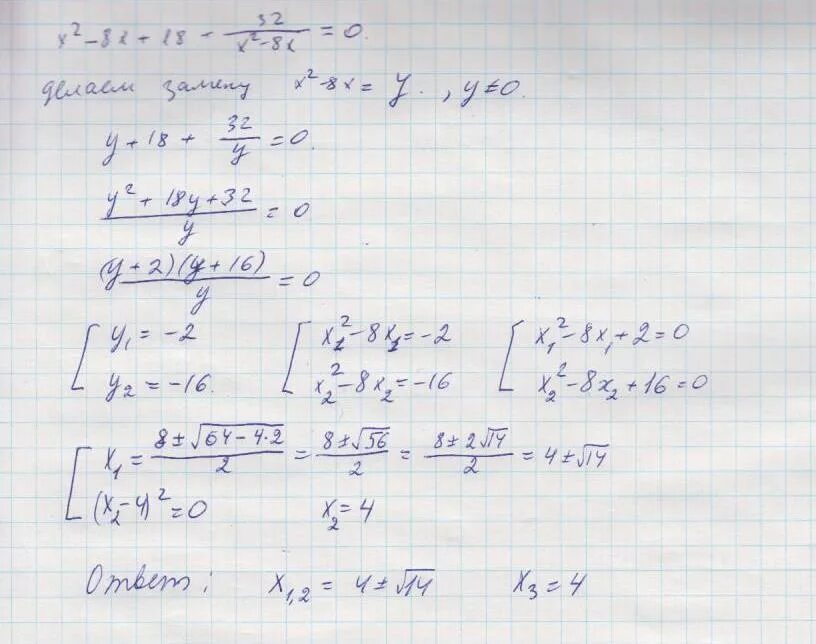 x² - 8x + 18 - 32/(x² - 8x) = 0.
делаем замену x² - 8x = y., y ≠ 0.
y + 18 + 32/y = 0.
(y² + 18y + 32)/y = 0
((y + 2)(y + 16))/y = 0
[ y₁ = -2 [ x₁² - 8x₁ = -2 [ x₁² - 8x₁ + 2 = 0
y₂ = -16. x₂² - 8x₂ = -16 x₂² - 8x₂ + 16 = 0
[ x₁ = (8 ± √(64 - 4·2))/2 = (8 ± √56)/2 = (8 ± 2√14)/2 = 4 ± √14
(x₂ - 4)² = 0 x₂ = 4
Ответ: x₁,₂ = 4 ± √14 x₃ = 4